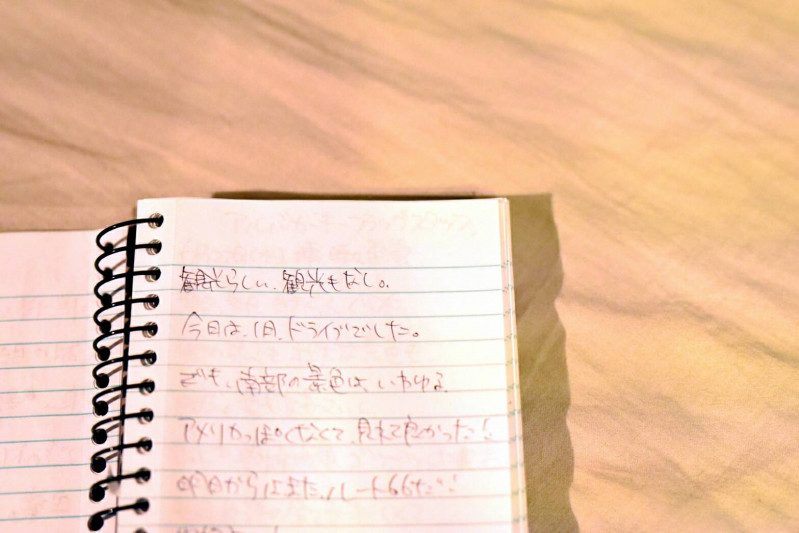 観光らしい、観光もなし。
今日は、1日、ドライブでした。
でも、南部の景色は、いわゆる
アメリカっぽくなくて、見れて良かった!
明日からはまた、ルート66だ!